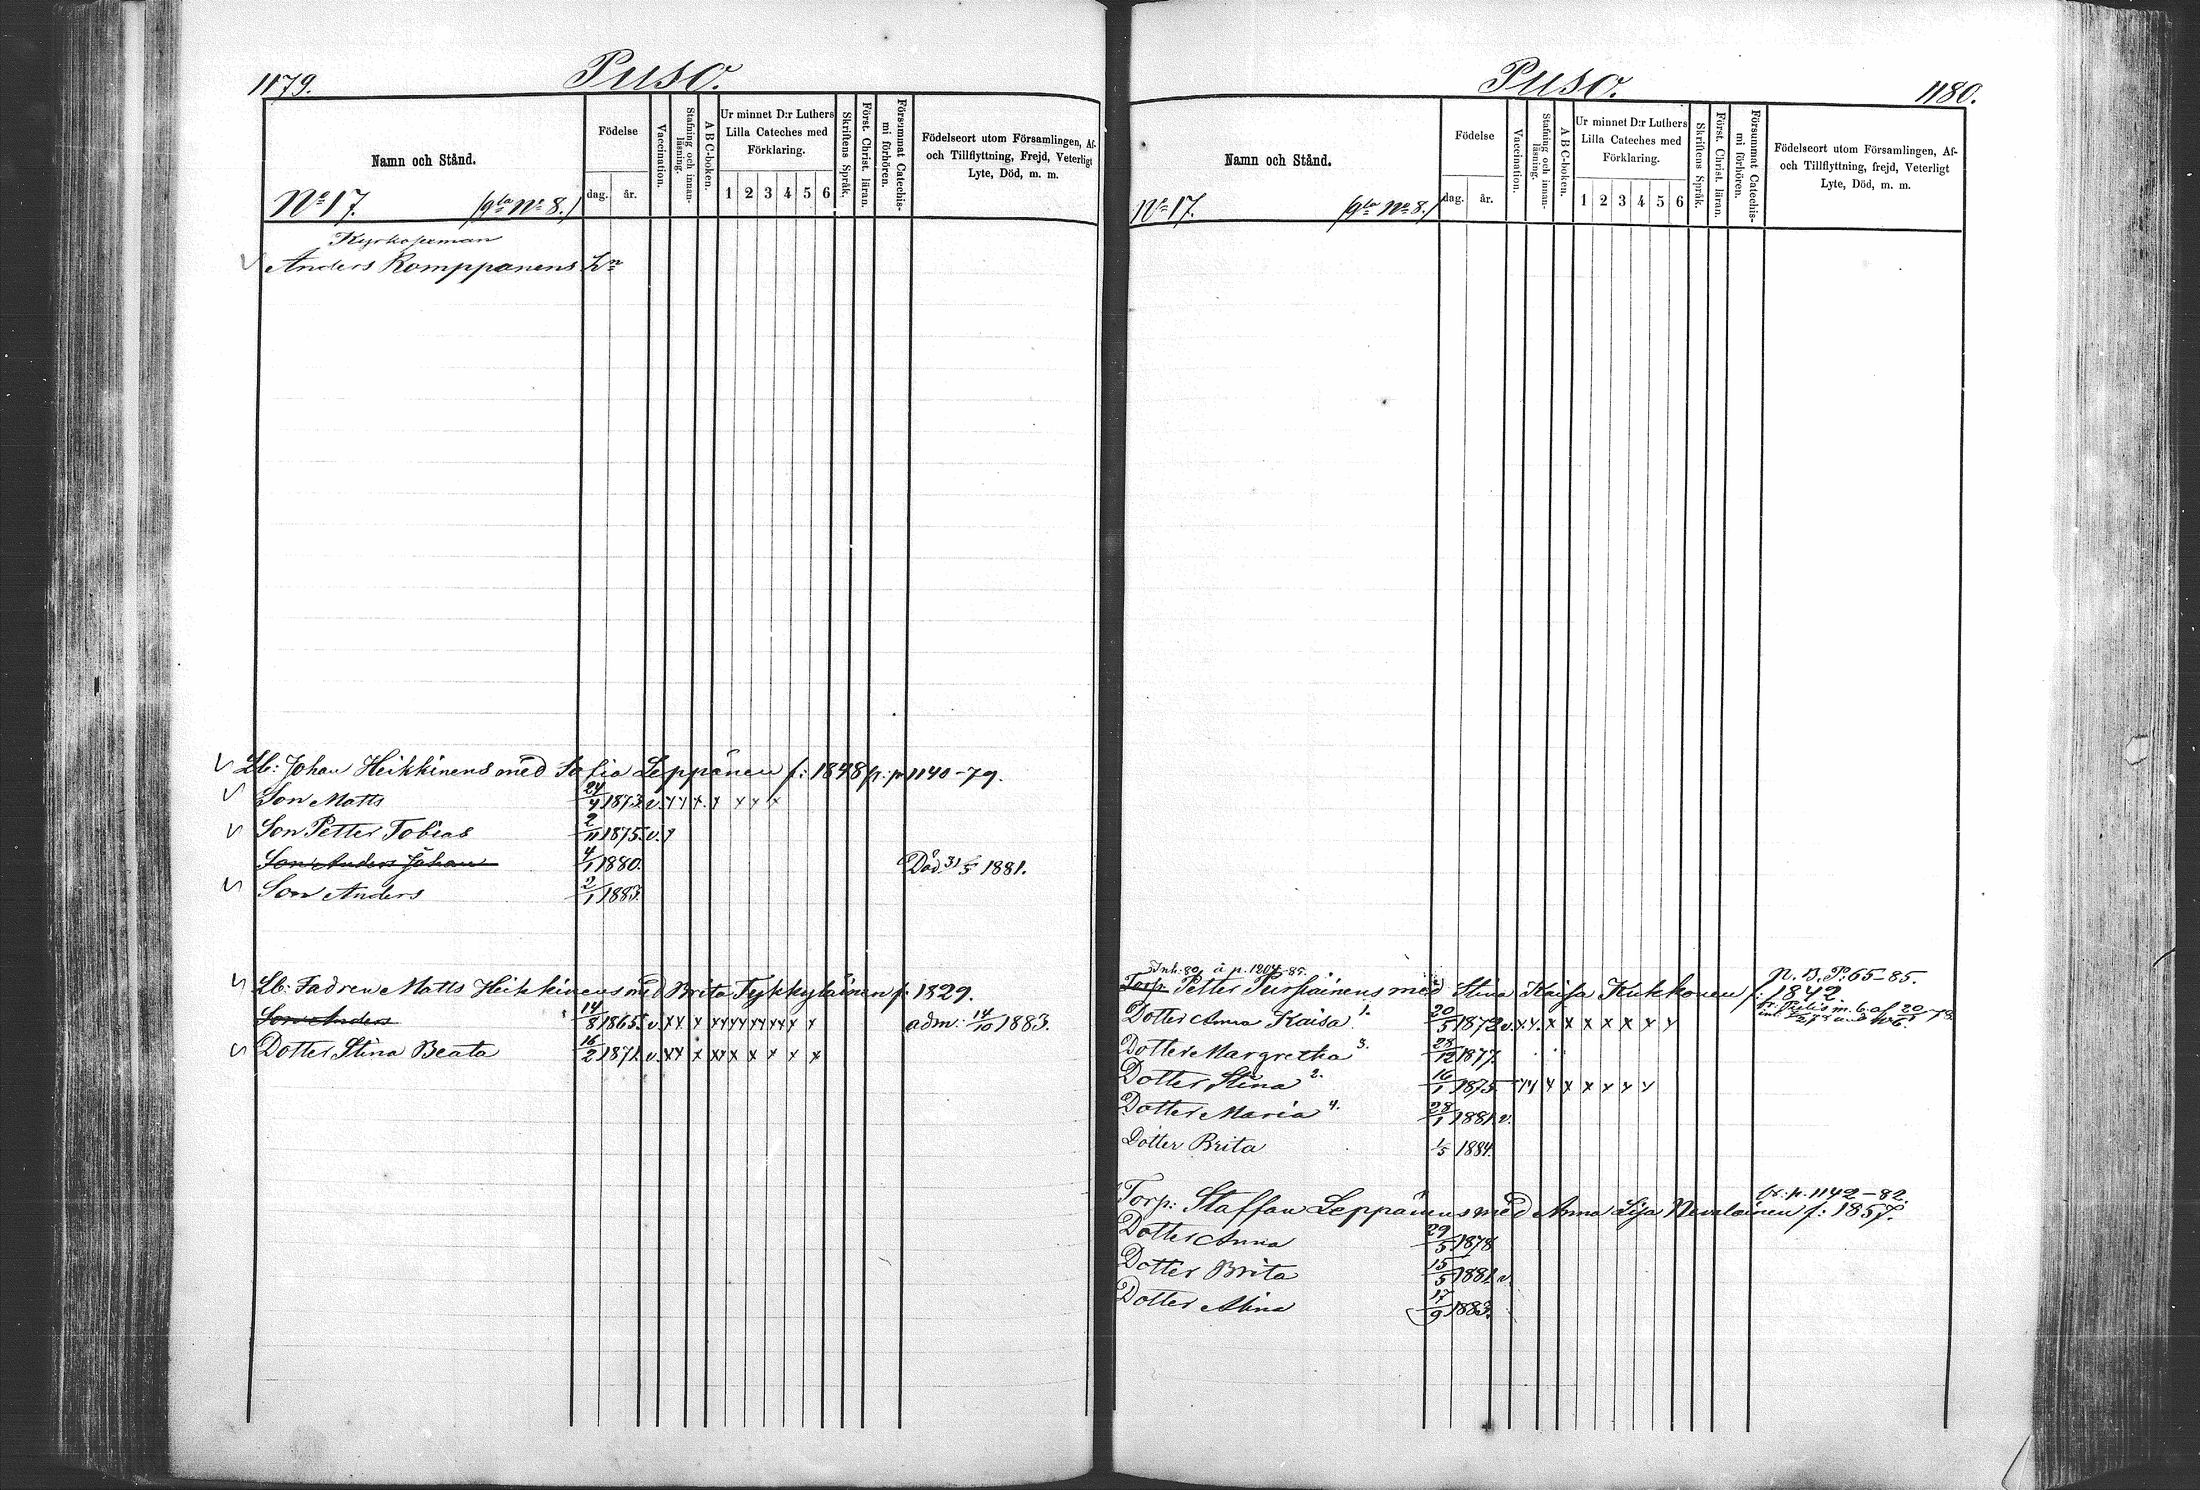 1179.
Puso.
Namn och Stånd.
Födelse
dag.
år.
Vaccination.
Stafning och innan-läsning.
A B C-boken.
Ur minnet D:r Luthers
Lilla Cateches med
Förklaring.
1 2 3 4 5 6
Skriftens Språk.
Först. Christ. läran.
Försummat Catechis-
mi förhören.
Födelseort utom Församlingen, Af-
och Tillflyttning, Frejd, Veterligt
Lyte, Död, m. m.
No 17. (gla No 8.)
Anders Romppanens Ln
Lb: Johan Heikkinens med Sofia Leppänen f: 1848 fr. p. 1140-79.
Son Matts 24/4 1873. v. x x x x x x x
Son Petter Tobias 2/11 1875. v. x
Son Anders Johan 4/1 1880. Död 31/5 1881.
Son Anders 2/1 1883.
Lb: Fadren Matts Heikkinens med Brita Tykkyläinen f: 1829.
Son Anders 14/8 1865. v. xx x xx xx xx xx x x adm: 14/10 1883.
Dotter Stina Beata 16/2 1871. v. xx x xx x x x x x
Puso.
1180.
Namn och Stånd.
Födelse
dag.
år.
Vaccination.
Stafning och innan-läsning.
A B C-boken.
Ur minnet D:r Luthers
Lilla Cateches med
Förklaring.
1 2 3 4 5 6
Skriftens Språk.
Först. Christ. läran.
Försummat Catechis-
mi förhören.
Födelseort utom Församlingen, Af-
och Tillflyttning, frejd, Veterligt
Lyte, Död, m. m.
No 17. (gla No 8.)
Inh. å p. 1204-85. N. B. P: 65-85.
Torp: Petter Pursiainens med Stina Kaisa Kukkonen f: 1842
Dotter Anna Kaisa 1. 20/5 1872 v. x x. x x x x x x x
Dotter Margretha 3. 28/12 1877.
Dotter Stina 2. 16/1 1875 x x x x x x x x
Dotter Maria 4. 28/1 1881 v.
Dotter Brita 1/5 1884.
fr. p. 1142-82.
Torp: Staffan Leppänens med Anna Lisa Nevalainen f: 1857.
Dotter Anna 29/5 1878
Dotter Brita 15/5 1881 v.
Dotter Alina 17/9 1883.